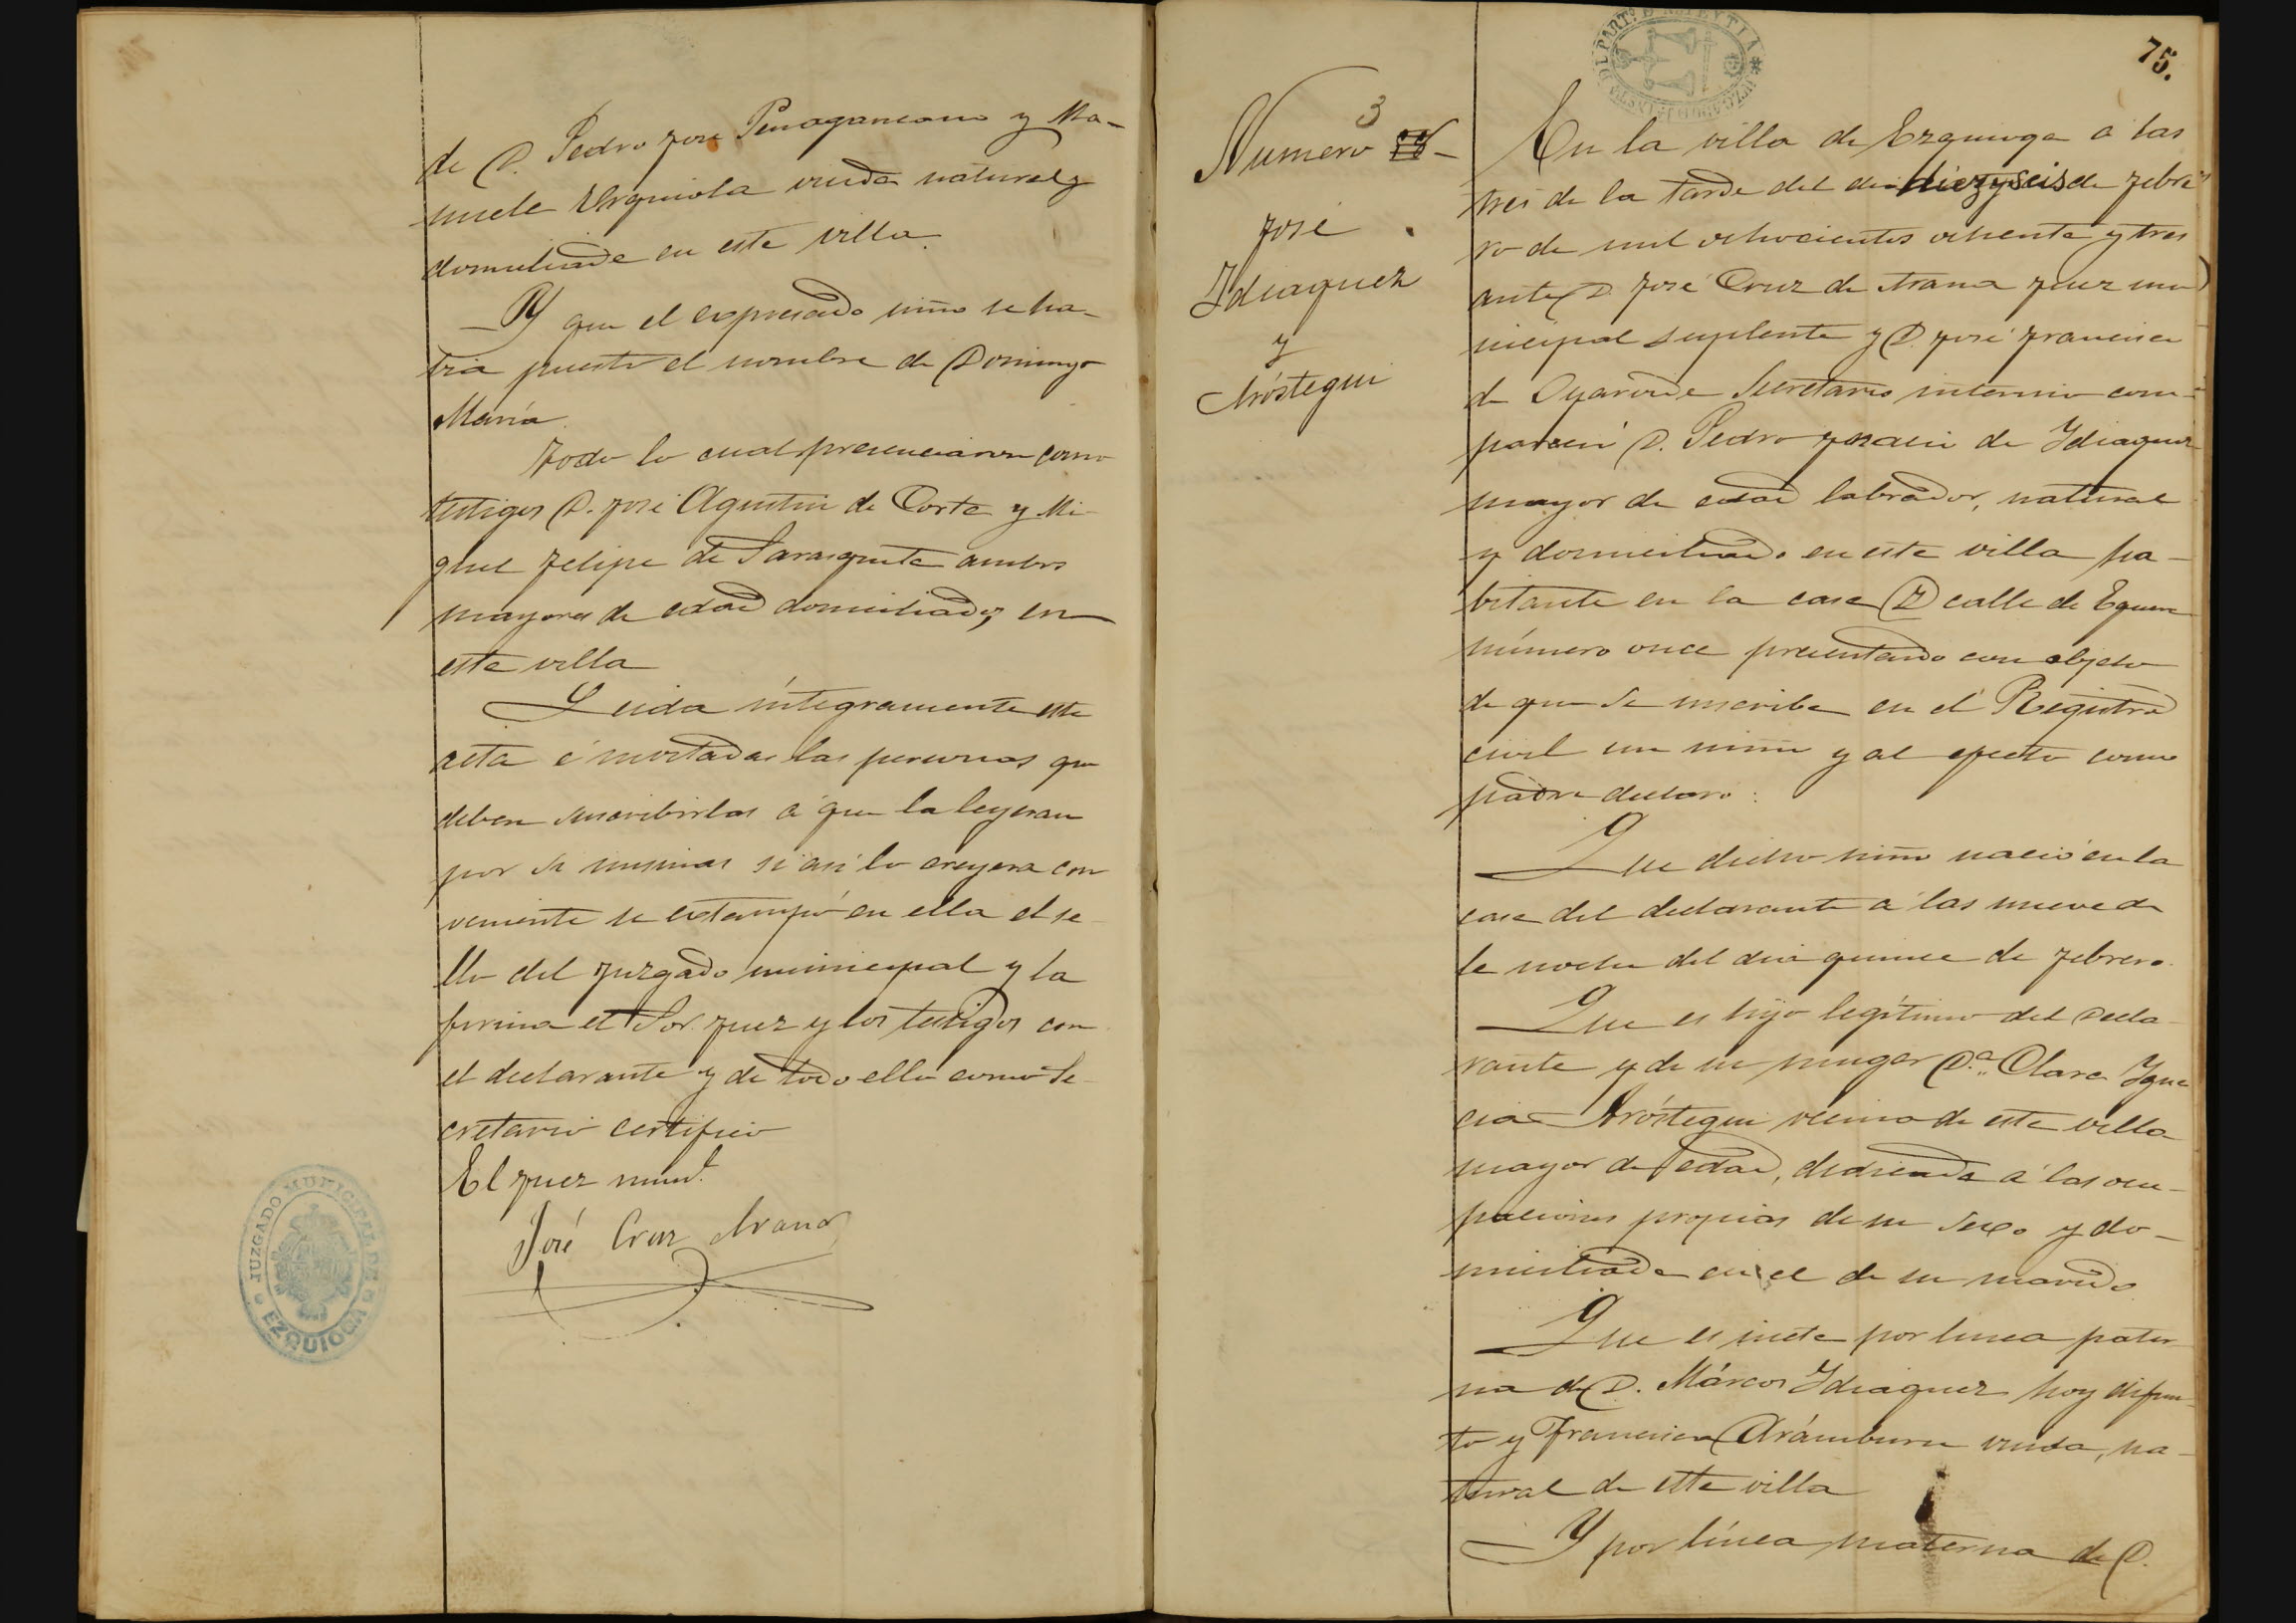 de D. Pedro José Penagaricano y Ma-
nuela Urquiola viuda natural y
domiciliada en esta villa.
Y que el expresado niño se ha-
bia puesto el nombre de Domingo
María.
Todo lo cual presenciaron como
testigos D. José Agustin de Corta y Mi-
guel Felipe de Sarasqueta ambos
mayores de edad domiciliados en
esta villa
Leida íntegramente esta
acta é invitadas las personas que
deben suscribirlas á que la leyeran
por si mismas si asi lo creyera con
veniente se estampó en ella el se-
llo del Juzgado municipal y la
firma el Sor. Juez y los testigos con
el declarante y de todo ello como Se-
cretario certifico
El Juez mun.l
José Cruz Arana
JUZGADO MUNICIPAL DE EZQUIOGA
75.
Numero 3
José
Ydiaquez
y
Aróstegui
En la villa de Ezquioga a las
tres de la tarde del dia diez y seis de Febre
ro de mil ochocientos ochenta y tres
ante D. José Cruz de Arana Juez mu
nicipal suplente y D. José Francisco
de Oyarvide Secretario interino com-
pareció D. Pedro José de Ydiaquez
mayor de edad labrador, natural
y domiciliado en esta villa ha-
bitante en la casa calle de
número once presentando con objeto
de que se inscriba en el Registro
civil un niño y al efecto como
padre declaro:
Que dicho niño nació en la
casa del declarante a las nueve de
la noche del dia quince de Febrero.
Que es hijo legítimo del Decla-
rante y de su muger D.ª Clara Ygna
cia Aróstegui vecina de esta villa
mayor de edad, dedicada á las ocu-
paciones propias de su sexo y do-
miciliada en el de su marido
Que es nieto por linea pater
na de D. Márcos Ydiaquez hoy difun-
to y Francisca Arámburu viuda, na-
tural de esta villa
Y por línea materna de D.